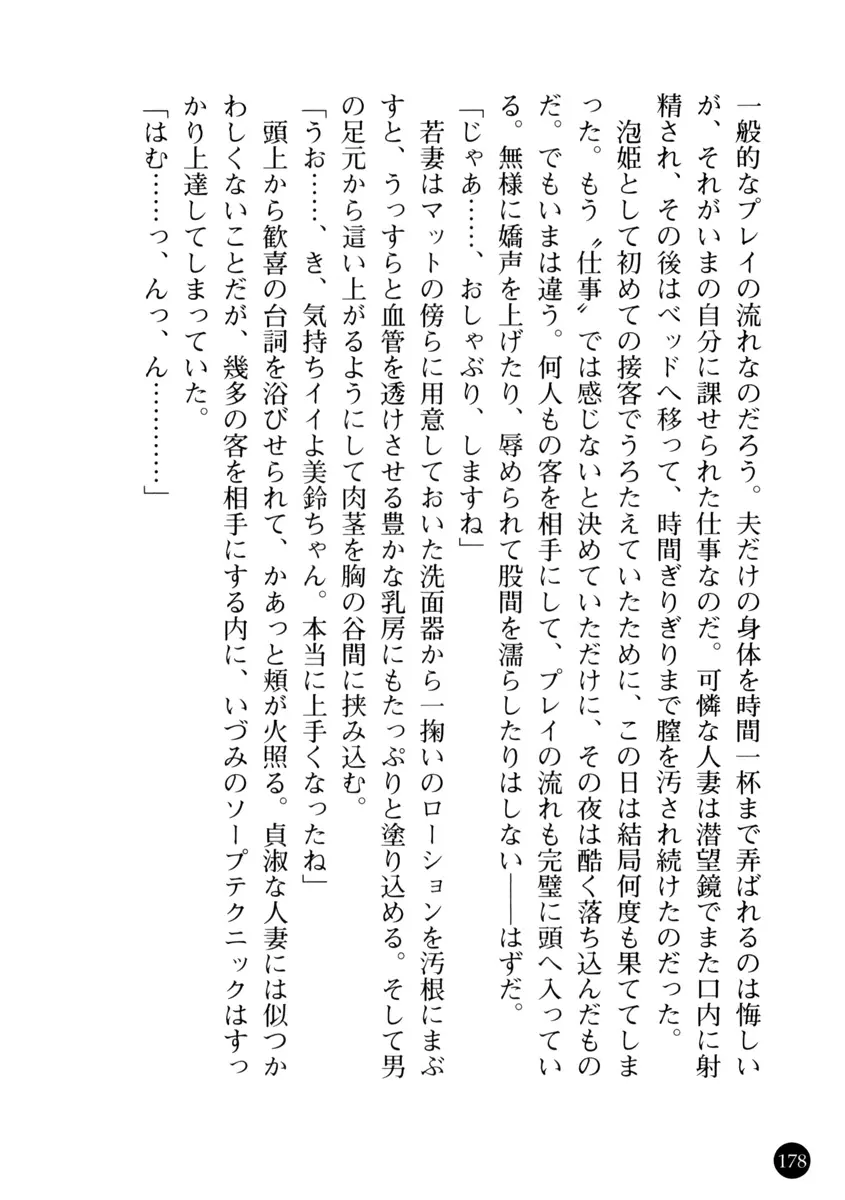 一般的なプレイの流れなのだろう。夫だけの身体を時間一杯まで弄ばれるのは悔しい
が、それがいまの自分に課せられた仕事なのだ。可憐な人妻は潜望鏡でまた口内に射
精され、その後はベッドへ移って、時間ぎりぎりまで膣を汚され続けたのだった。
泡姫として初めての接客でうろたえていたために、この日は結局何度も果ててしま
った。もう〝仕事〟では感じないと決めていただけに、その夜は酷く落ち込んだもの
だ。でもいまは違う。何人もの客を相手にして、プレイの流れも完璧に頭へ入ってい
る。無様に嬌声を上げたり、辱められて股間を濡らしたりはしない――はずだ。
「じゃあ……、おしゃぶり、しますね」
若妻はマットの傍らに用意しておいた洗面器から一掬いのローションを汚根にまぶ
すと、うっすらと血管を透けさせる豊かな乳房にもたっぷりと塗り込める。そして男
の足元から這い上がるようにして肉茎を胸の谷間に挟み込む。
「うお……、き、気持ちイイよ美鈴ちゃん。本当に上手くなったね」
頭上から歓喜の台詞を浴びせられて、かあっと頬が火照る。貞淑な人妻には似つか
わしくないことだが、幾多の客を相手にする内に、いづみのソープテクニックはすっ
かり上達してしまっていた。
「はむ……っ、んっ、ん…………」
178